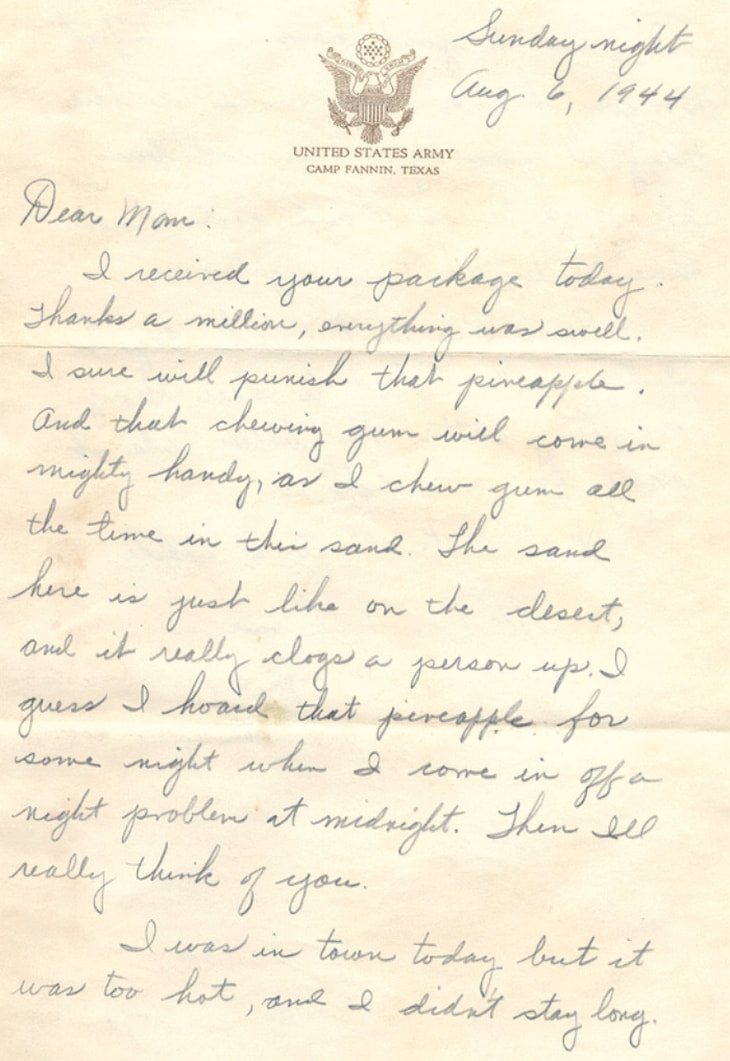 Sunday night
Aug. 6, 1944
UNITED STATES ARMY
CAMP FANNIN, TEXAS
Dear Mom:
I received your package today.
Thanks a million, everything was swell.
I sure will punish that pineapple.
And that chewing gum will come in
mighty handy, as I chew gum all
the time in this sand. The sand
here is just like on the desert,
and it really clogs a person up. I
guess I hoard that pineapple for
some night when I come in off a
night problem at midnight. Then Ill
really think of you.
I was in town today but it
was too hot, and I didn't stay long.